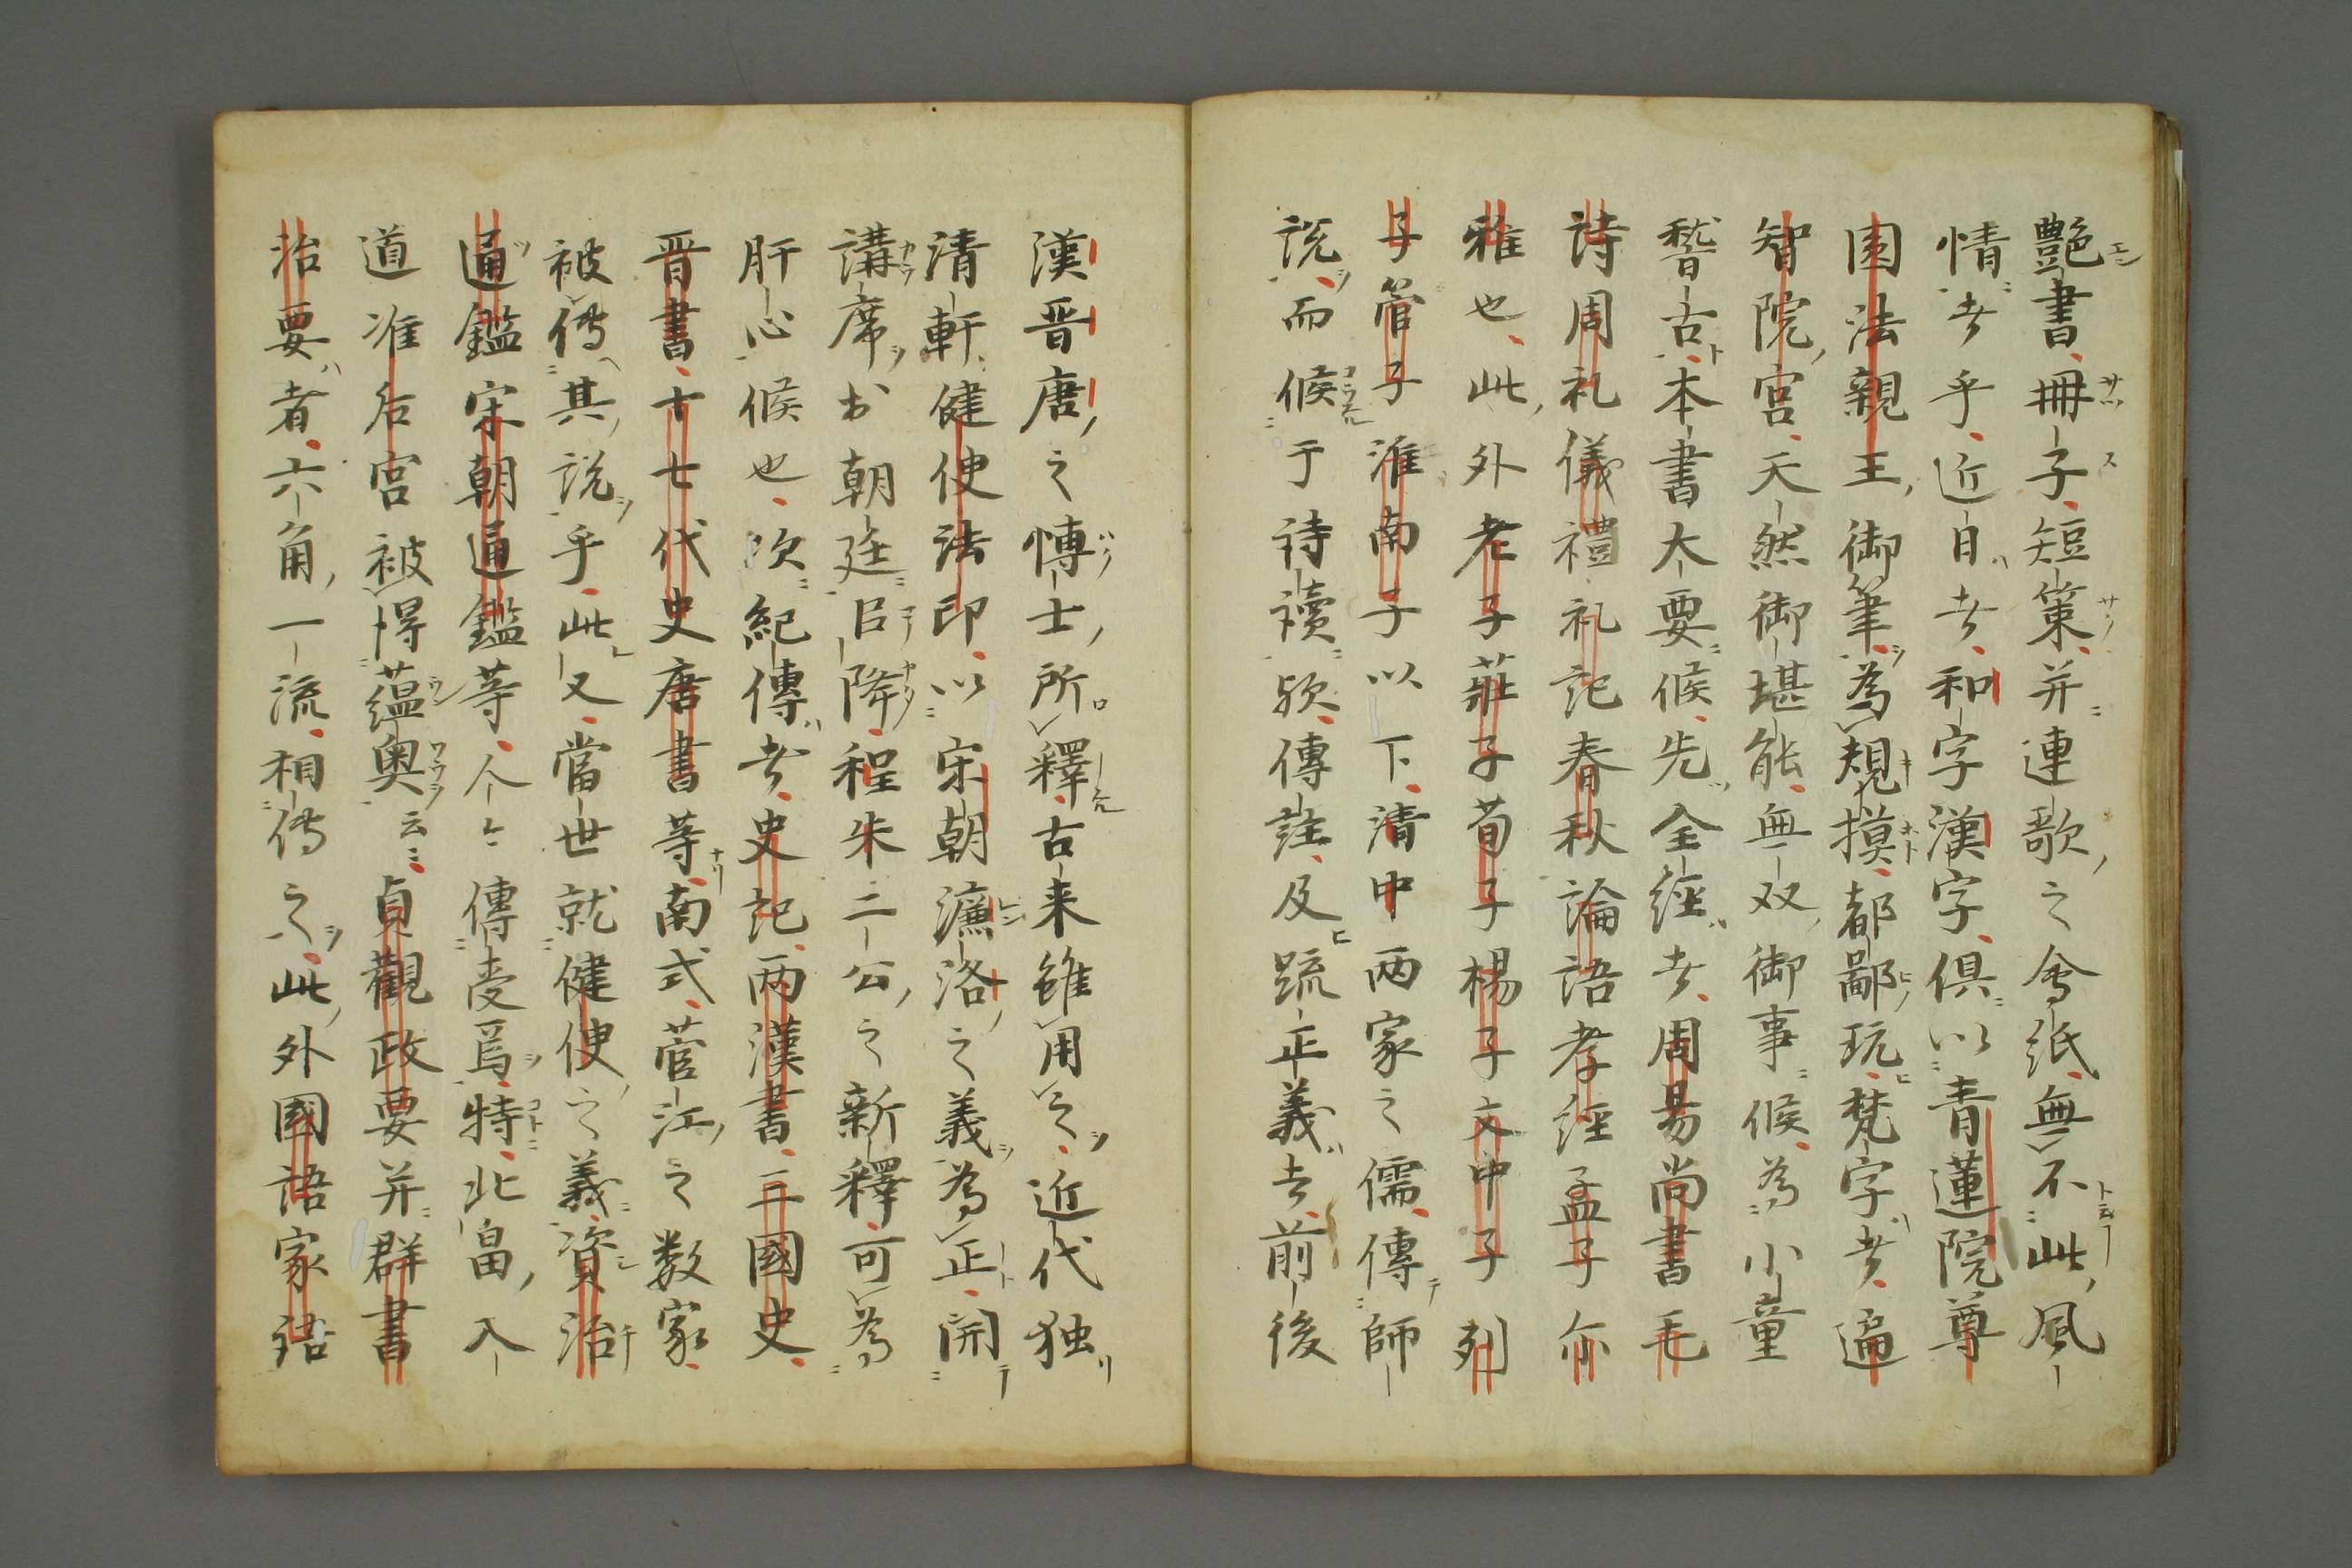 艶書冊子短策并連歌之會紙無不此風
情者乎近日者和字漢字倶以青蓮院尊
圓法親王御筆為規摸都鄙玩梵字者遍
智院宮天然御堪能無双御事候為小童
稽古本書大要候先全経者周易尚書毛
詩周礼儀禮礼記春秋論語孝経孟子尓
雅也此外老子莊子荀子楊子文中子列
子管子淮南子以下清中两家之儒傳師
説而候于詩讀欤傳註及䟽正義者前後
漢晋唐之博士所釋古来雖用之近代独
清軒健叟法印以宋朝濂洛之義為正開
講席於朝廷臣降程朱二公之新釋可為
肝心候也次紀傳者史記两漢書三國史
晋書十七代史唐書等南式菅江之数家
被傳其説乎此又當世就健叟之義資治
通鑑宋朝通鑑等人々傳受焉特北畠入
道准后宮被得蘊奥云々貞觀政要并群書
治要者六角一流相傳之此外國語家語